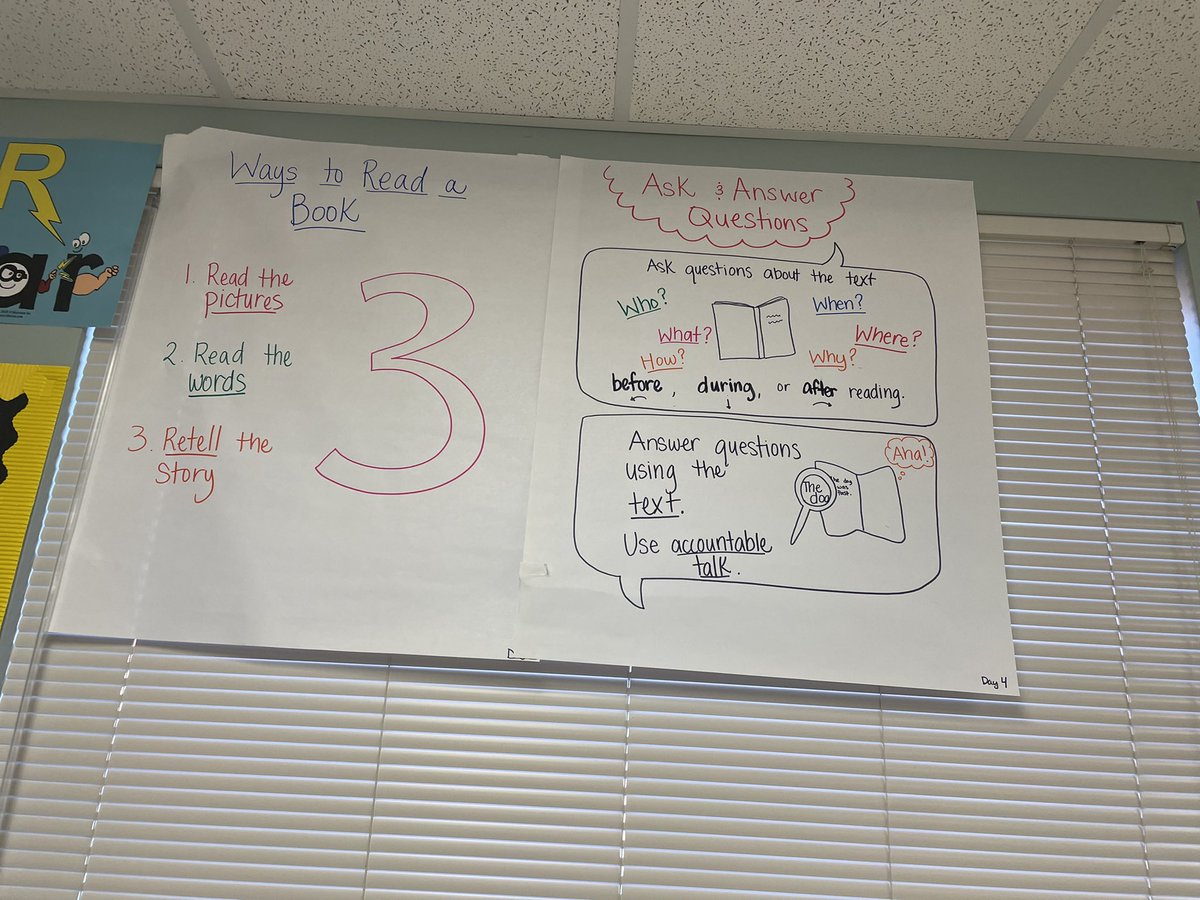 R
air
Ways to Read a
Book
1. Read the
pictures
2. Read the
words
3. Retell the
Story
3
Ask & Answer
Questions
Ask questions about the text
Who?
When?
What?
Where?
How?
Why?
before, during, or after reading.
Answer questions
using the
text.
Use accountable
talk.
Aha!
The
dog
the dog
was
fast.
Day 4